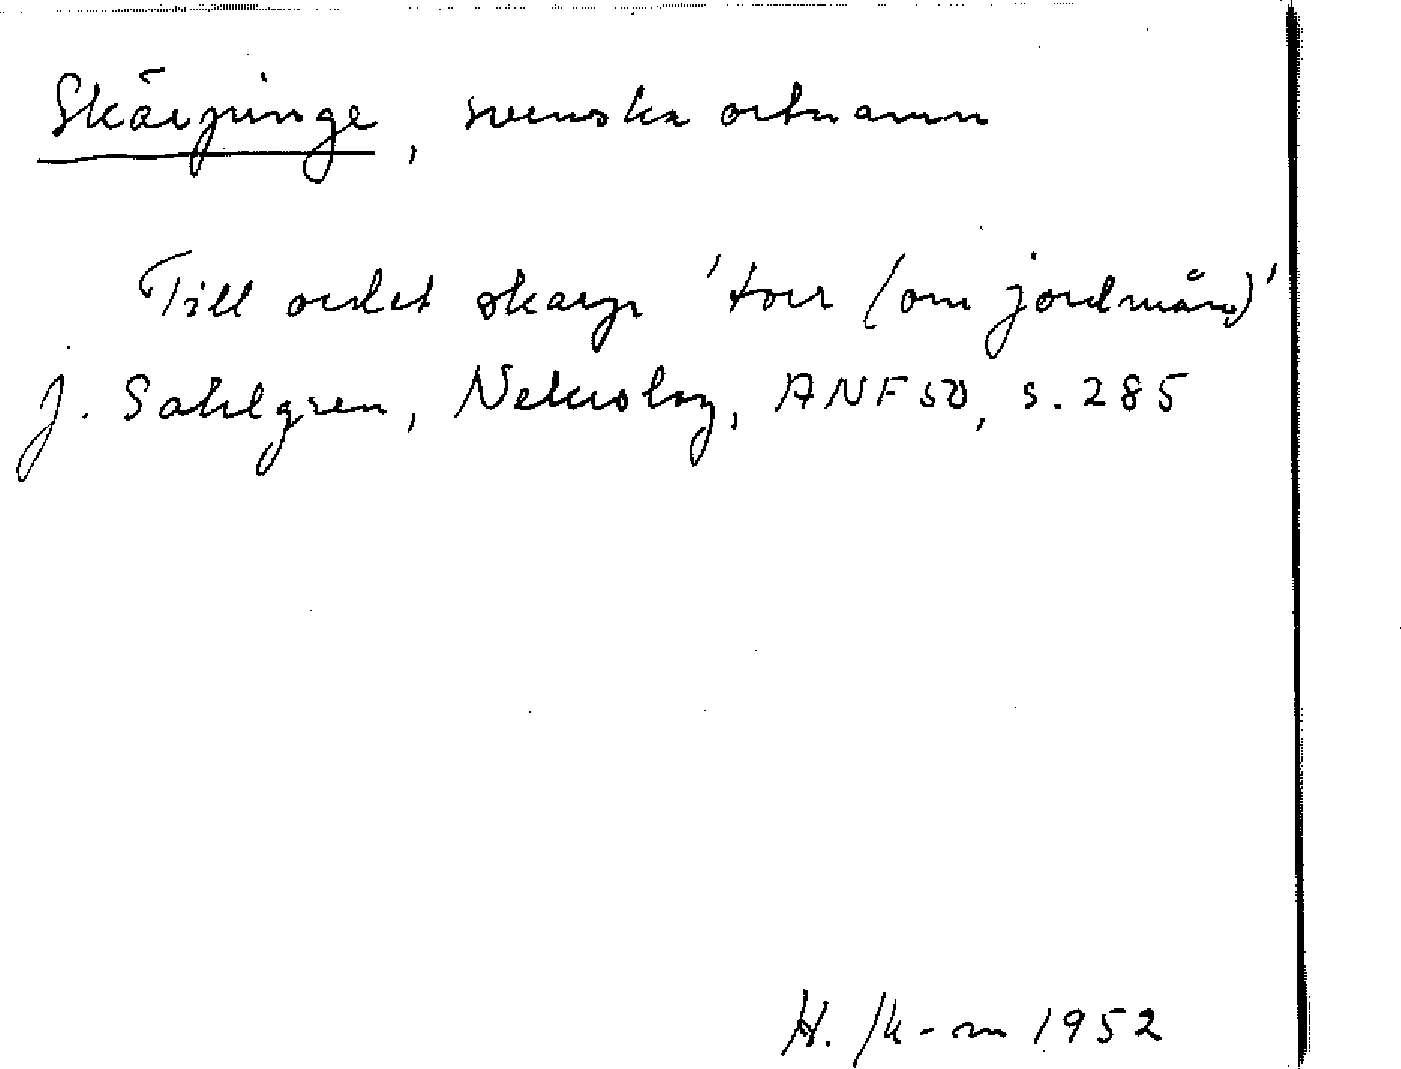 Skärpinge, svenska ortnamn
Till ordet skarp 'torr (om jordmån)'
J. Sahlgren, Nekrolog, ANF 50, s. 285
H. 1952